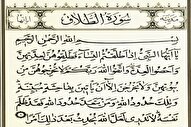 سُورَةُ الطَّلَاقِ
بِسْمِ اللَّهِ الرَّحْمَٰنِ الرَّحِيمِ
يَا أَيُّهَا النَّبِيُّ إِذَا طَلَّقْتُمُ النِّسَاءَ فَطَلِّقُوهُنَّ لِعِدَّتِهِنَّ
وَأَحْصُوا الْعِدَّةَ وَاتَّقُوا اللَّهَ رَبَّكُمْ لَا تُخْرِجُوهُنَّ مِنْ
بُيُوتِهِنَّ وَلَا يَخْرُجْنَ إِلَّا أَنْ يَأْتِينَ بِفَاحِشَةٍ مُبَيِّنَةٍ
وَتِلْكَ حُدُودُ اللَّهِ وَمَنْ يَتَعَدَّ حُدُودَ اللَّهِ فَقَدْ ظَلَمَ
نَفْسَهُ لَا تَدْرِي لَعَلَّ اللَّهَ يُحْدِثُ بَعْدَ ذَٰلِكَ أَمْرًا